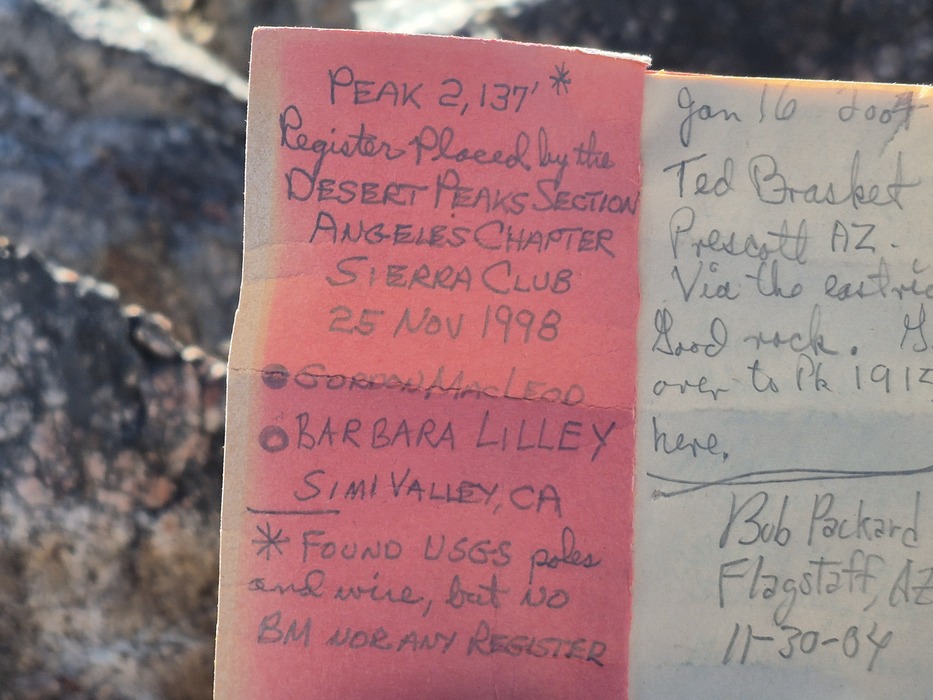 PEAK 2,137' *
Register Placed by the
DESERT PEAKS SECTION
ANGELES CHAPTER
SIERRA CLUB
25 NOV 1998
GORDON MACLEOD
BARBARA LILLEY
SIMI VALLEY, CA
* FOUND USGS poles
and wire, but NO
BM NOR ANY REGISTER
Jan 16
Ted Brasket
Prescott AZ.
Via the east
Good rock.
over to Pk 1915
here.
Bob Packard
Flagstaff, AZ
11-30-04